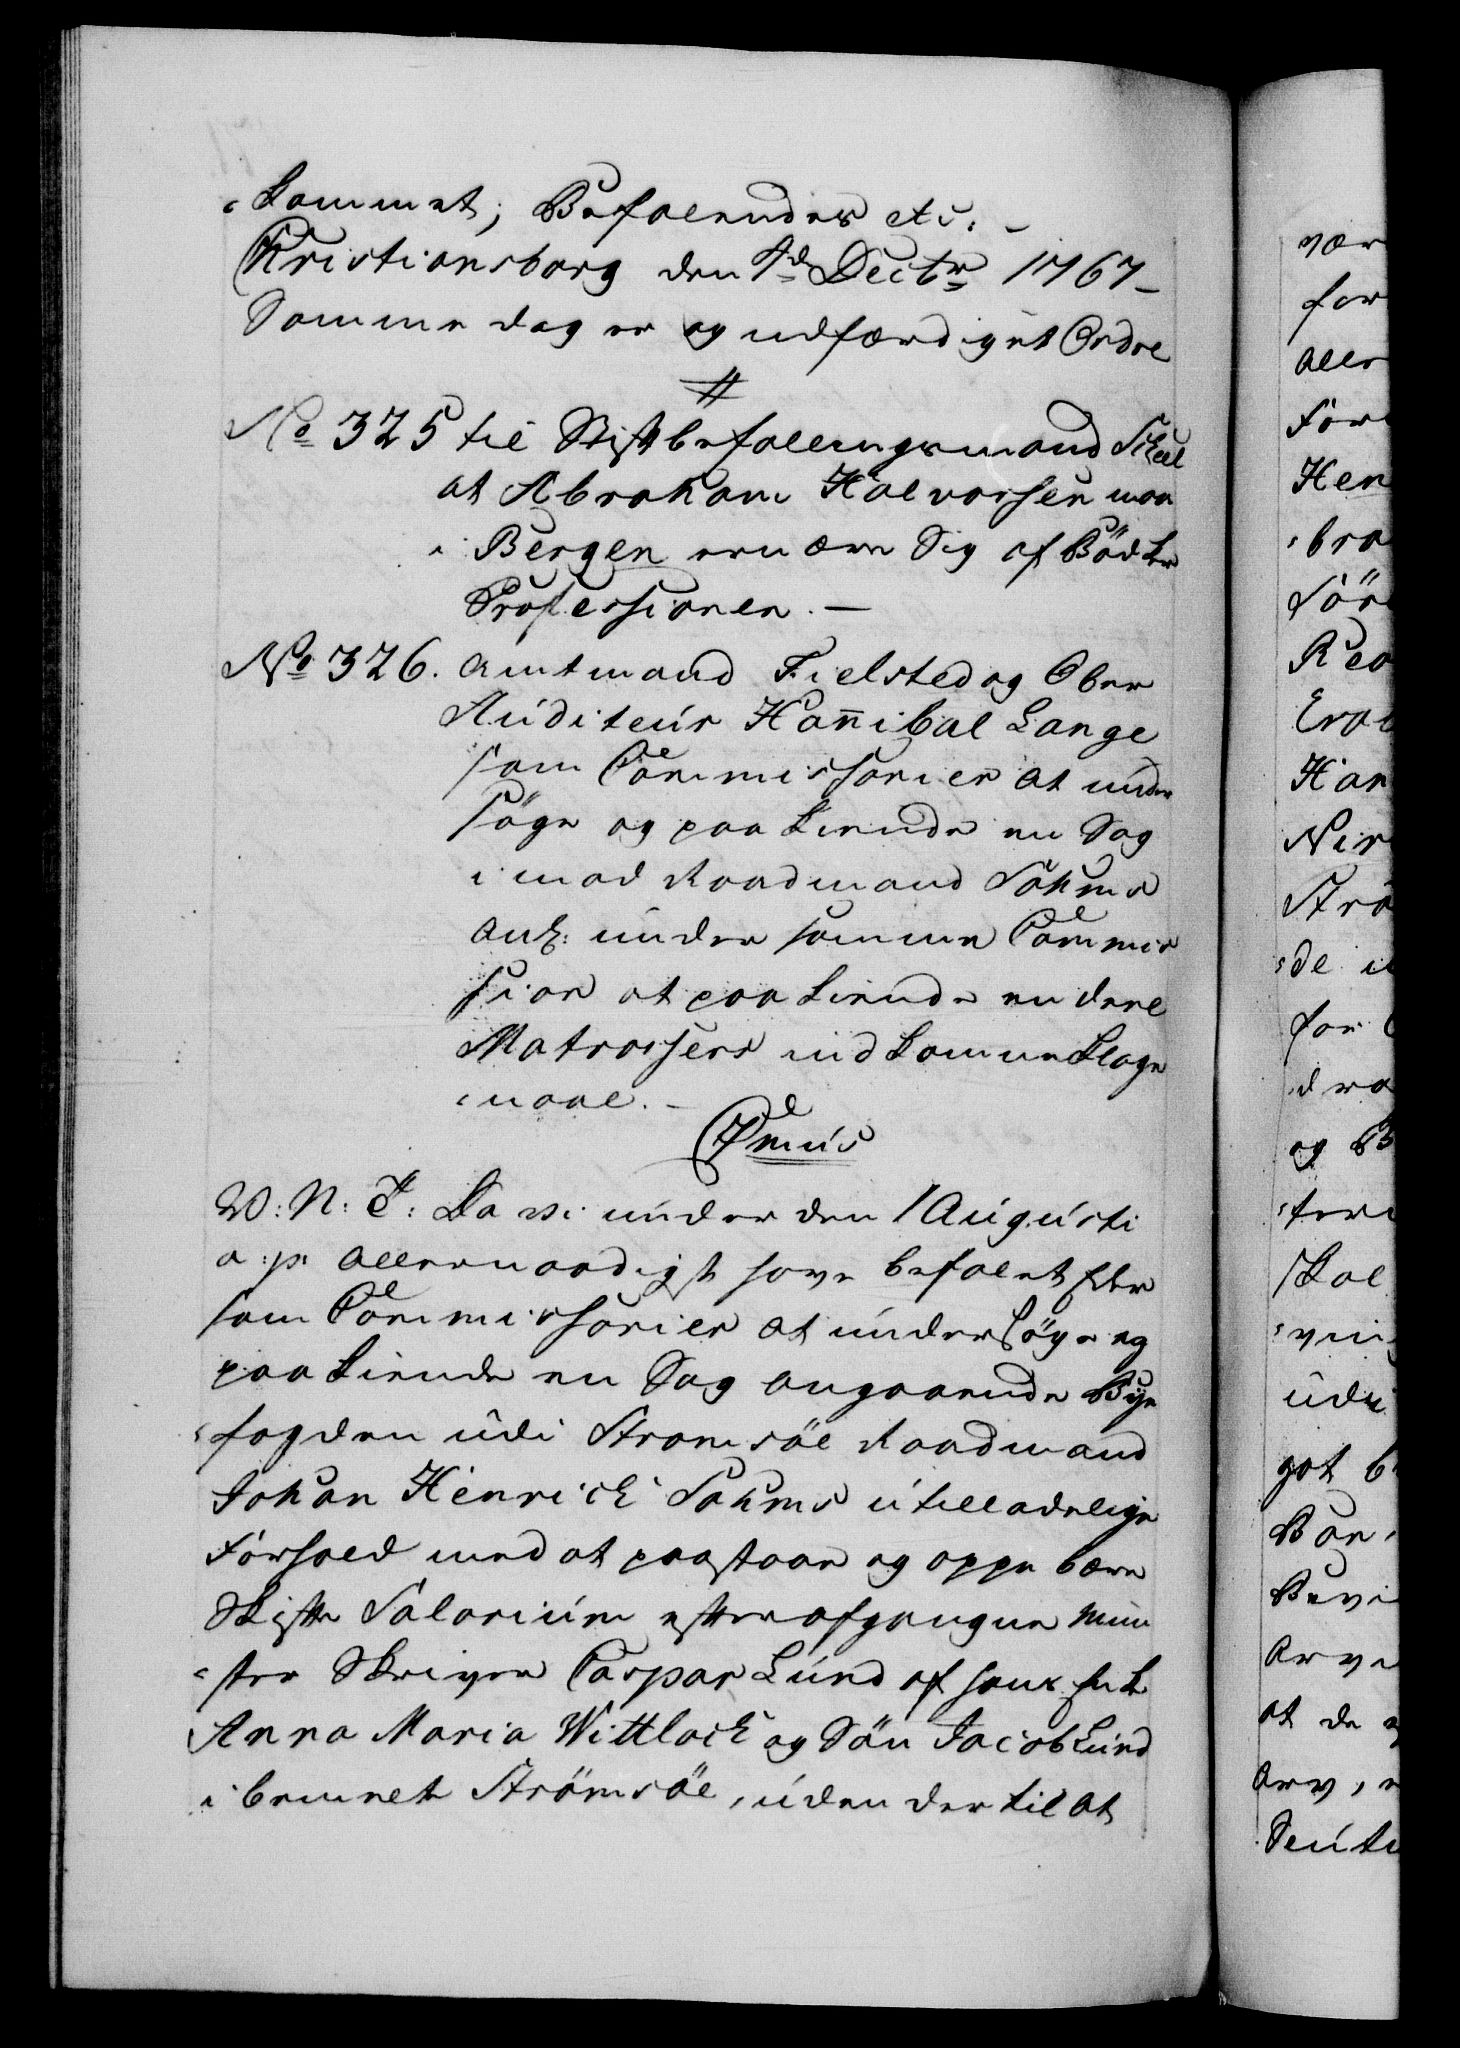 kommet; Befalendes etc: –
Christiansborg den 4de Decbr 1767 –
Samme dag er og udfærdiget Ordre
No 325 til Stiftbefallingsmand Scheel
at Abraham Halvorsen maa
i Bergen ernære Sig af Bödker
Professionen. —
No 326. Amtmand Fielsted og Ober
Auditeur Hannibal Lange
som Commissarier at under
söge og paa kiende en Sag
imod Raadmand Söhms
anl: under samme Commis
sion at paakiende en deel
Matrossers indkomne Klage
maal. –
Cþmus
W: N: T: Da vi under den 1 Augusti
a: p: allernaadigst have befalet Eder
som Commissarier at undersöge og
paakiende en Sag angaaende Bye
fogden udi Stromsöe Raadmand
Johan Henrich Sohms utilladelige
Forhold med at paastaae og oppebære
Skifte Salarium efter afgangne Mün
ster Skriver Caspar Lund af hans Enke
Anna Maria Wittlock og Sön Jacob Lund
i bemeldte Strömsöe, uden dertil at
vær
for
aller
For
Hen
bra
Sör
Rea
Erab
Han
Nir
Strö
de u
for
dra
og B
ter
Skal
vii
udi
got b
Bor
Bevi
Arve
at de
Arv,
Sente